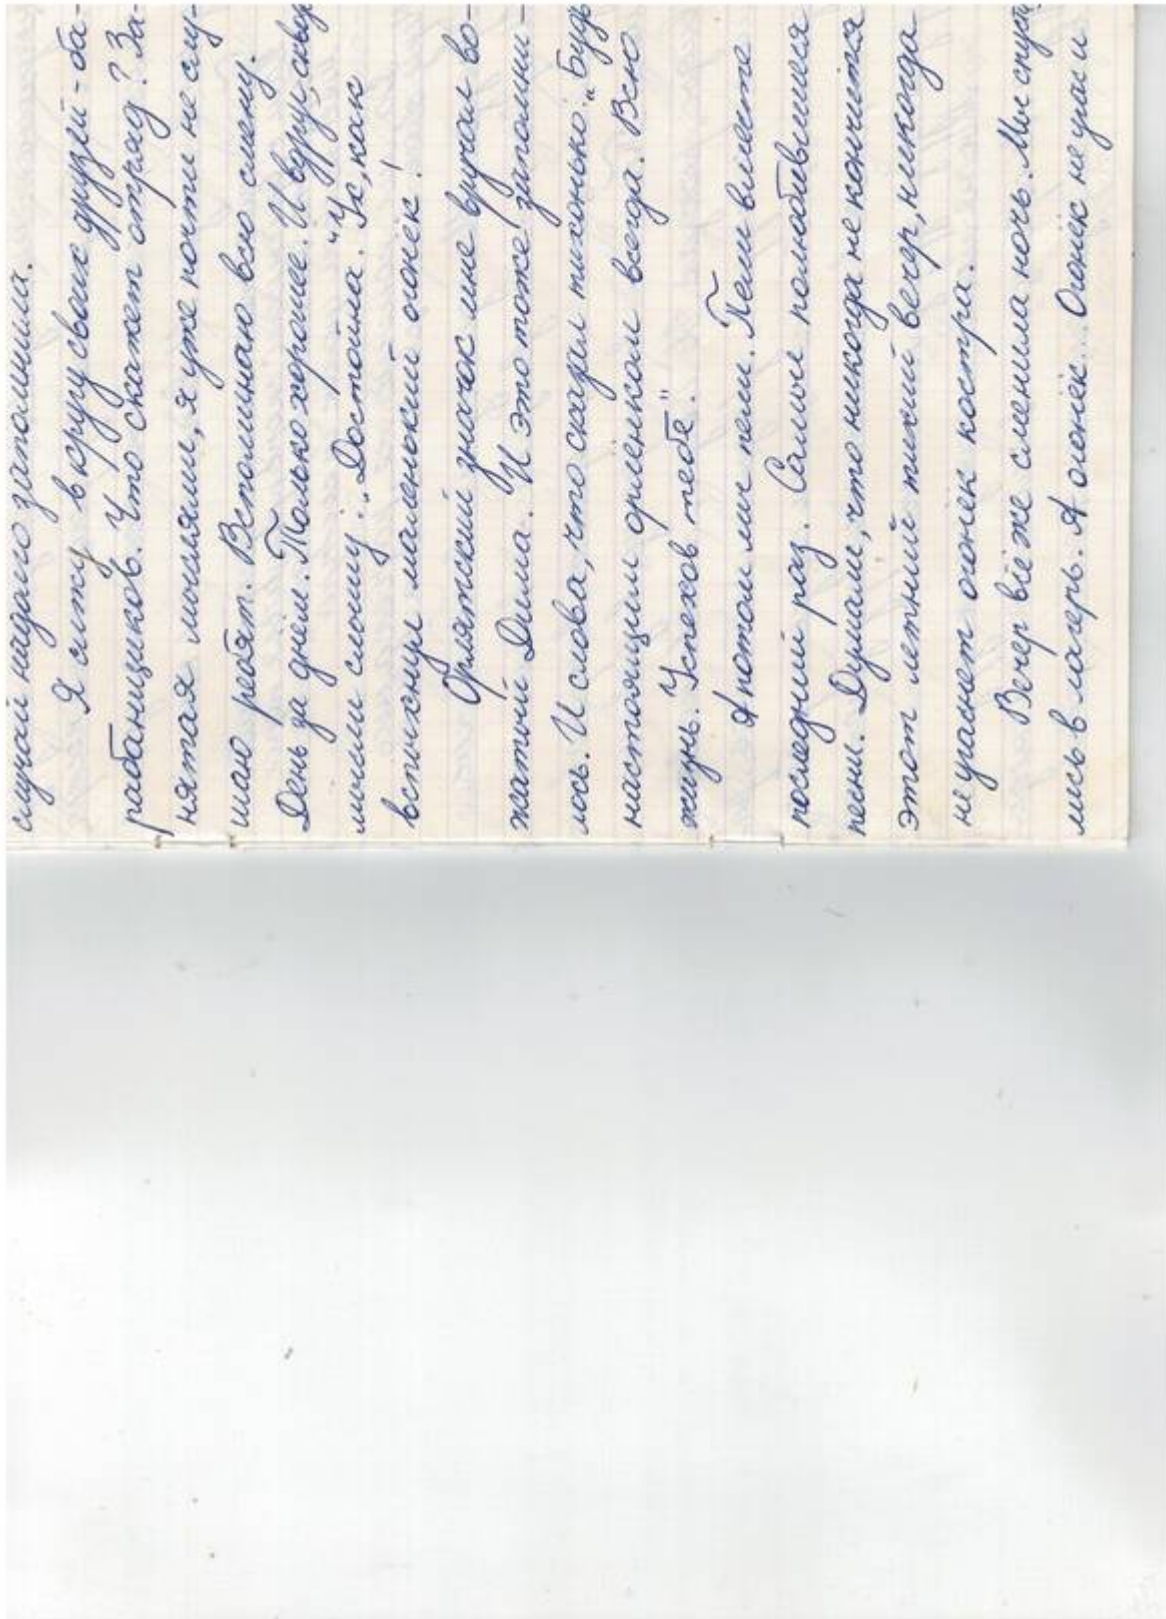 случай надолго запомнила.
Я сижу в кругу своих друзей - ба-
рабанщиков. Что скажет отряд? За-
нятая мыслями, я уже почти не слу-
шаю ребят. Вспоминаю всю смену.
День за днём. Только хорошее. И вдруг, сквозь
мысли слышу: „Достойна." Ух, как
вспыхнул маленький огонёк!
Орлятский значок мне вручал во-
жатый Дима. И это тоже запомни-
лось. И слова, что сказал тихонько: „Будь
настоящим орлёнком всегда. Всю
жизнь. Успехов тебе."
А потом мы пели. Пели вместе
последний раз. Самые полюбившиеся
песни. Думали, что никогда не кончится
этот летний тихий вечер, никогда
не угаснет огонёк костра.
Вечер всё же сменила ночь. Мы спусти
лись в лагерь. А огонёк... Огонёк не угас и